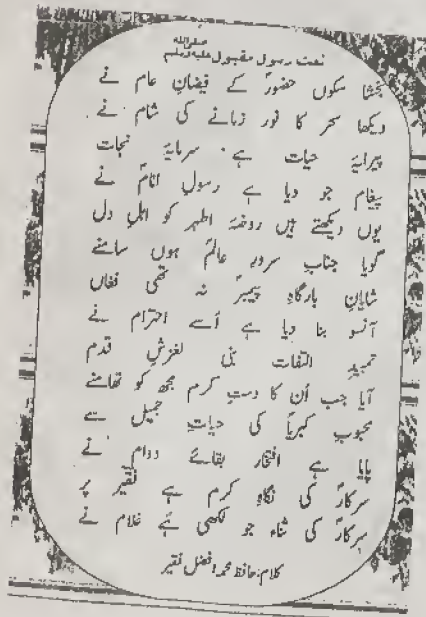 نعت رسول مقبول صلی اللہ علیہ وسلم
بخشا سکوں حضورؐ کے فیضانِ عام نے
دیکھا سحر کا نور زمانے کی شام نے
پیرایۂ حیات ہے سرمایۂ نجات
پیغام جو دیا ہے رسولِ انامؐ نے
یوں دیکھتے ہیں روضۂ اطہر کو اہلِ دل
گویا جنابِ سرورِ عالمؐ ہوں سامنے
شایانِ بارگاہِ پیمبرؐ نہ تھی فغاں
آنسو بنا دیا ہے اُسے احترام نے
تمہیدِ التفات بنی لغزشِ قدم
آیا جب اُن کا دستِ کرم مجھ کو تھامنے
محبوبِ کبریاؐ کی حیاتِ جمیل سے
پایا ہے افتخار بقائے دوام نے
سرکارؐ کی نگاہِ کرم ہے فقیر پر
سرکارؐ کی ثناء جو لکھی ہے غلام نے
کلام: حافظ محمد افضل فقیر